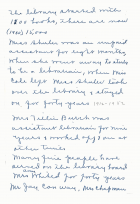 The library started with
1200 books, There are now
(1960) 16,000
Mrs. Shuler was an unpaid
assistant for eight months,
When she went away to study
to be a librarian, when Mrs.
Cole left Mrs. Shuler took
over the library & stayed
on for forty years 1912-1952
Mrs. Julia Burch was
assistant librarian for nine
years & worked off & on at
other times
Many fine people have
served on the library board
Mrs. White for forty years
Mr. Jay Conway, Mrs. Chapman